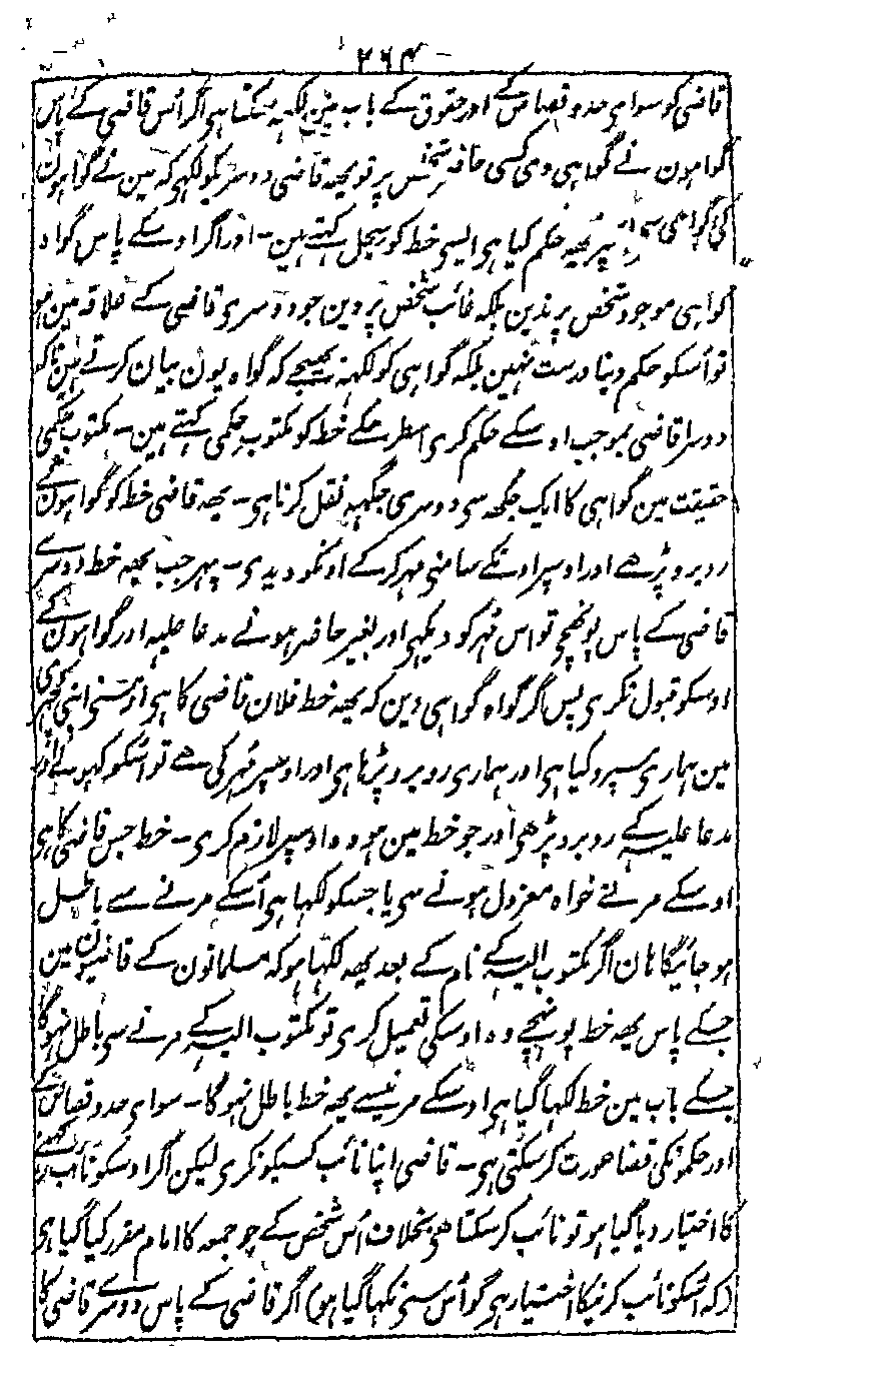 ۲۶۴
قاضی کو سوای حدو قصاص کے اور حقوق کے باب مین لکہہ سکتا ہی اگر اُس قاضی کے پاس
گواہون نے گواہی دی کسی حاضر شخص پر تو یہہ قاضی دوسریکو لکہی کہ مین نے گواہون
کی گواہی سی پر یہہ حکم کیا ہی ایسی خط کو سجل کہتے ہین - اور اگر اوسکے پاس گواہ
گواہی موجود شخص پر ندین بلکہ غائب شخص پر دین جو دوسری قاضی کے علاقہ مین ہو
تو اُسکو حکم دینا درست نہین بلکہ گواہی کو لکہہ بھیجے کہ گواہ یون بیان کرتے ہین تاکہ
دوسرا قاضی بموجب اوسکے حکم کری اسطرحکے خط کو مکتوب حکمی کہتے ہین - مکتوب حکمی
حقیقت مین گواہی کا ایک جگہہ سی دوسری جگہہ نقل کرنا ہی - یہہ قاضی خط کو گواہون کے
روبرو پڑھے اور اوسپر اونکے سامنی مہر کرکے اونکو دیدی - پہر جب یہہ خط دوسرے
قاضی کے پاس پونہچے تو اس مُہر کو دیکہی اور بغیر حاضر ہونے مدعا علیہ اور گواہون کے
اوسکو قبول نکری پس اگر گواہ گواہی دین کہ یہہ خط فلان قاضی کا ہی اوسنی اپنی کچہری
مین ہماری سپرد کیا ہی اور ہماری روبرو پڑہا ہی اور اوسپر مُہر کی ھے تو اُسکو کہولے اور
مدعا علیہ کے روبرو پڑھی اور جو خط مین ہو وہ اوسپر لازم کری - خط جس قاضی کا ہی
اوسکے مرنے خواہ معزول ہونے سی یا جسکو لکہا ہی اُسکے مرنے سے باطل
ہو جائیگا ہان اگر مکتوب الیہ کے نام کے بعد یہہ لکہا ہو کہ مسلمانون کے قاضیون مین
جسکے پاس یہہ خط پونہچے وہ اوسکی تعمیل کری تو مکتوب الیہ کے مرنے سی باطل نہوگا
جسکے باب مین خط لکہا گیا ہی اوسکے مرنیسے یہہ خط باطل نہوگا - سوای حدو قصاص کے
اور حکمونکی قضا عورت کر سکتی ہی - قاضی اپنا نائب کسیکو نکری لیکن اگر اوسکو نائب کرنے
کا اختیار دیا گیا ہو تو نائب کر سکتا ھی بخلاف اُس شخص کے جو جمعہ کا امام مقرر کیا گیا ہی
(کہ اُسکو نائب کرنیکا اختیار ہی گو اُس سی نکہا گیا ہو) اگر قاضی کے پاس دوسرے قاضی کا